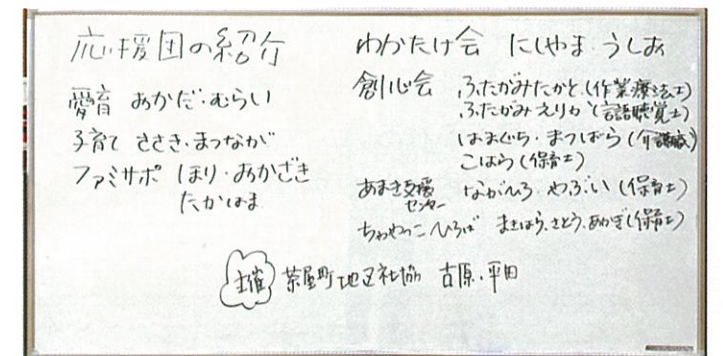 応援団の紹介
愛育 おかだ・むらい
子育て ささき・まつなが
ファミサポ ほり・おかざき
たかはま
わかたけ会 にしやま・うしお
創心会 ふたがみたかと(作業療法士)
ふたがみえりか(言語聴覚士)
はまぐち・まつばら(介護職)
こはら(保育士)
あまき支援センター ながひろ・やぶい(保育士)
ちゃやっこひろば まきはら、さとう、あかぎ(保育士)
主催 茶屋町地区社協 古原・平田